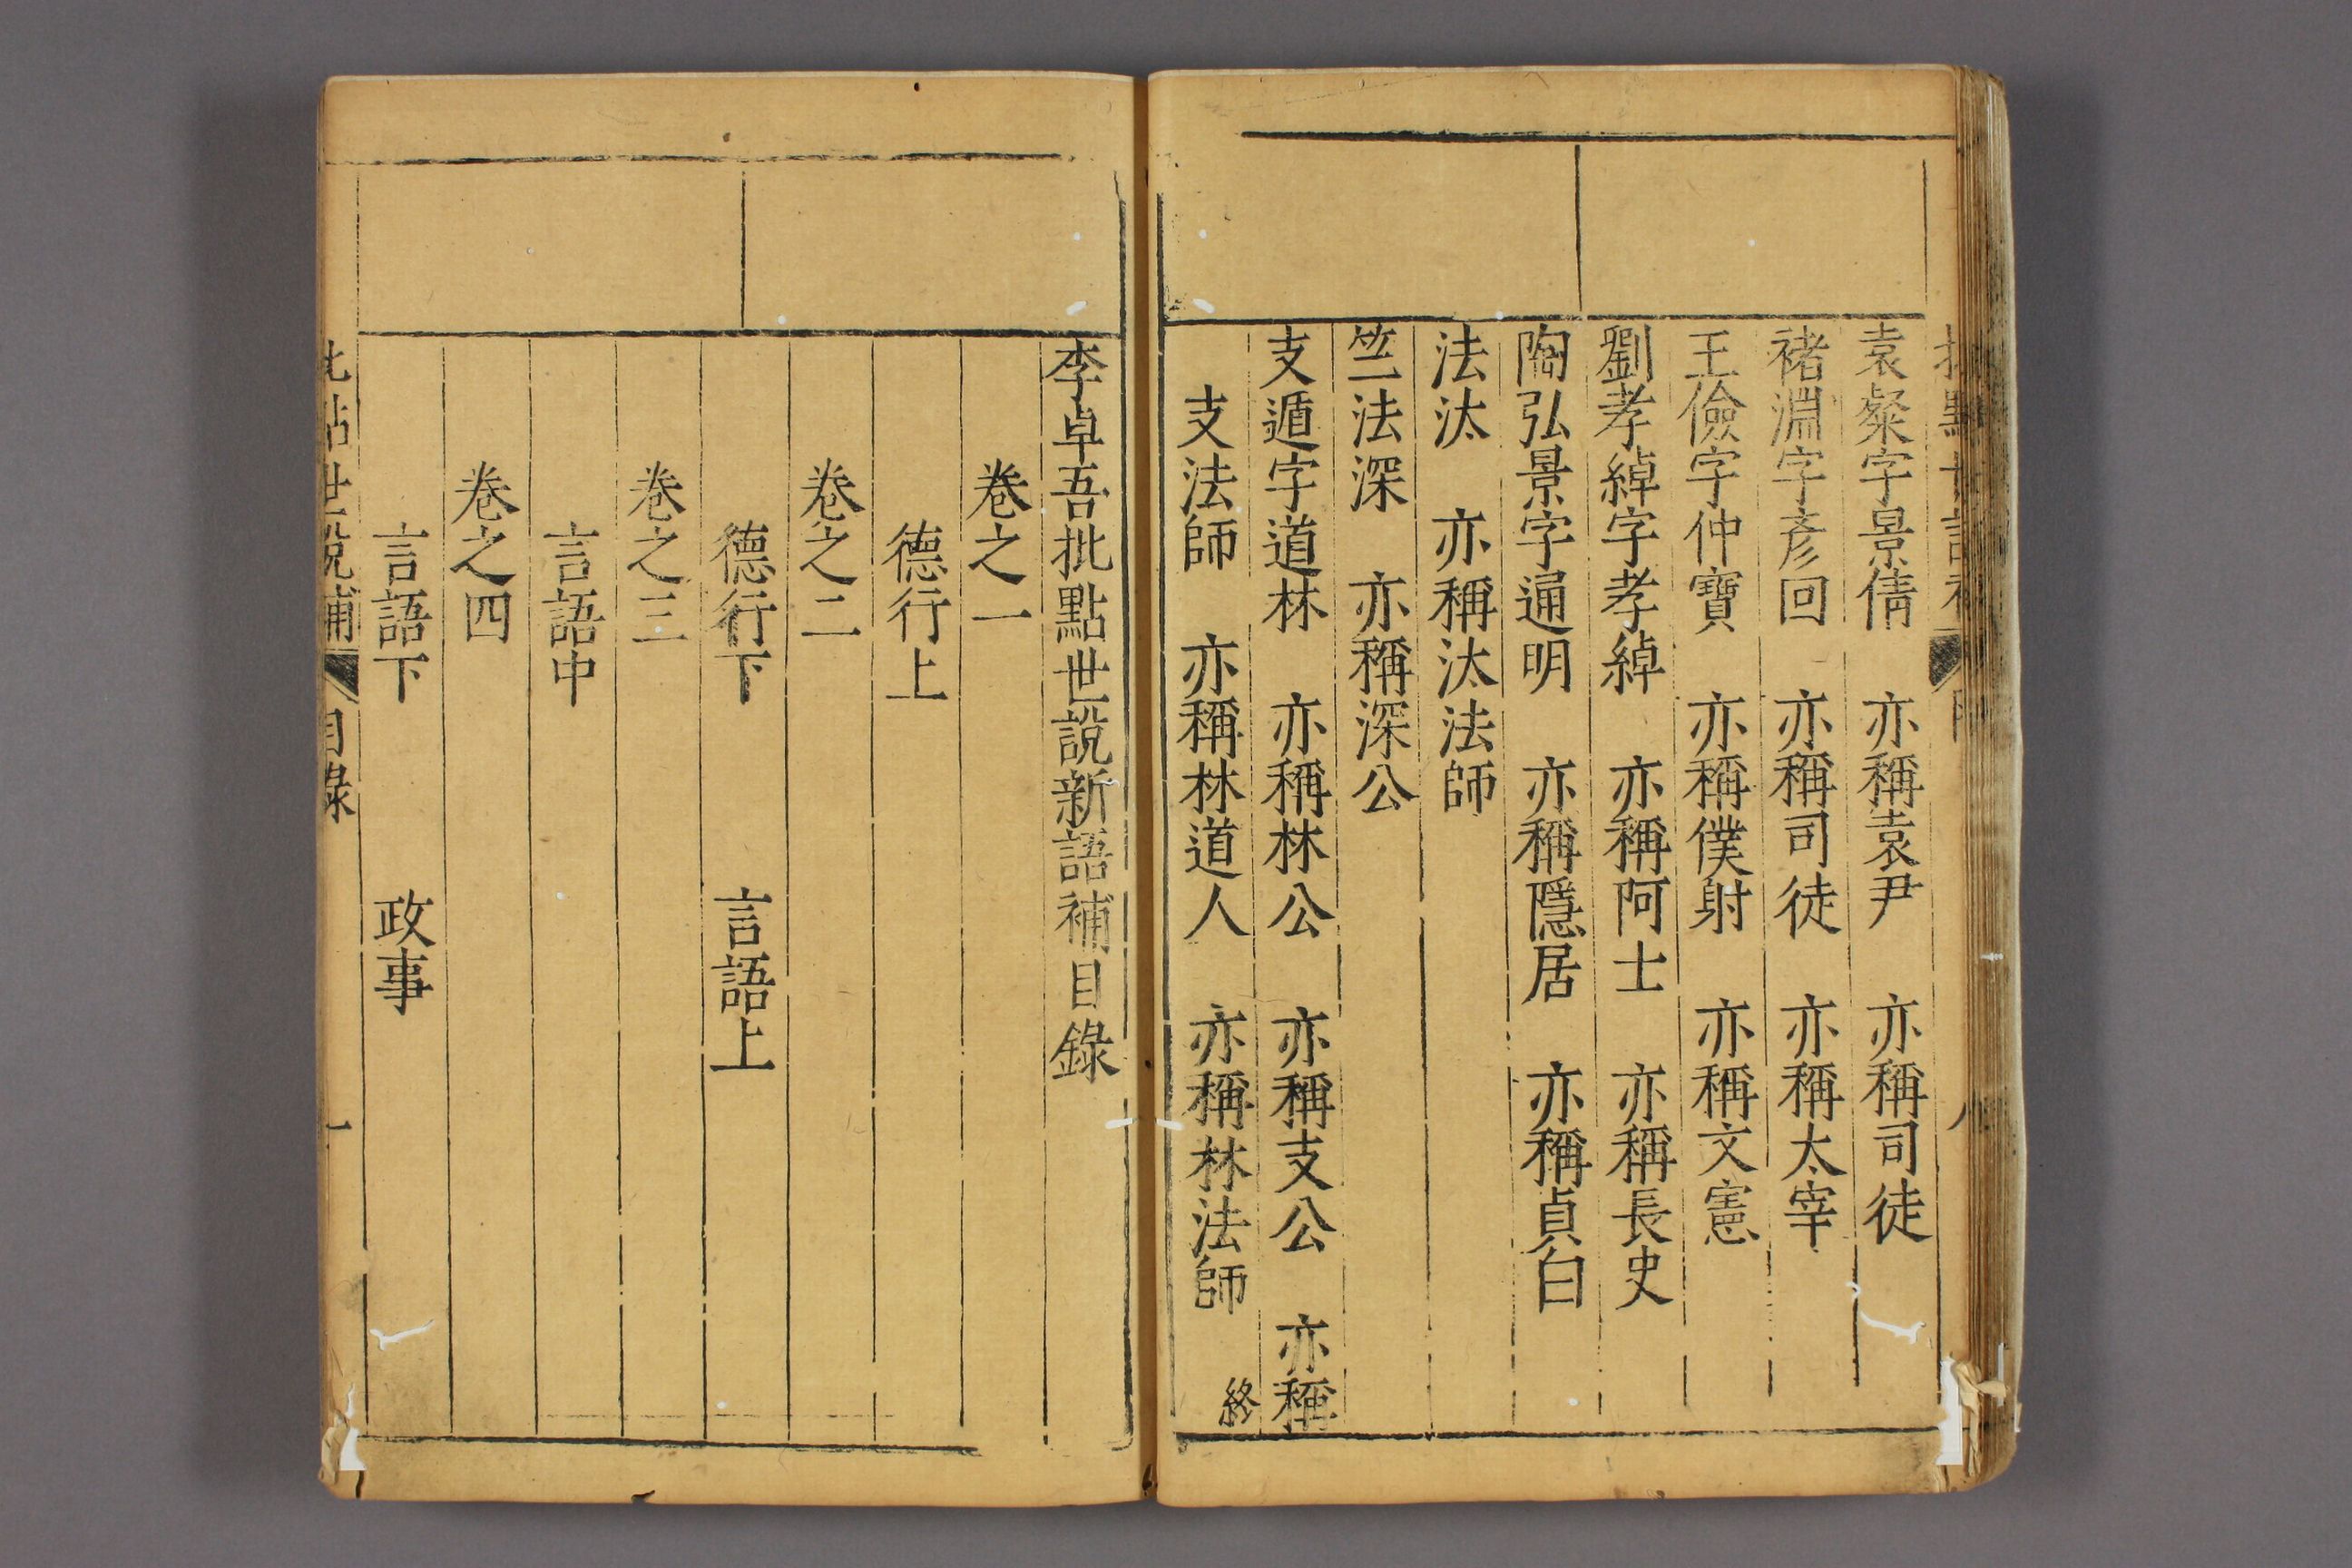 袁粲字景倩　亦稱袁尹　亦稱司徒
褚淵字彥回　亦稱司徒　亦稱太宰
王儉字仲寶　亦稱僕射　亦稱文憲
劉孝綽字孝綽　亦稱阿士　亦稱長史
陶弘景字通明　亦稱隱居　亦稱貞白
法汰　亦稱汰法師
竺法深　亦稱深公
支遁字道林　亦稱林公　亦稱支公　亦稱
支法師　亦稱林道人　亦稱林法師　終
李卓吾批點世說新語補目錄
卷之一
德行上
卷之二
德行下　言語上
卷之三
言語中
卷之四
言語下　政事
批點世說補　目錄　一